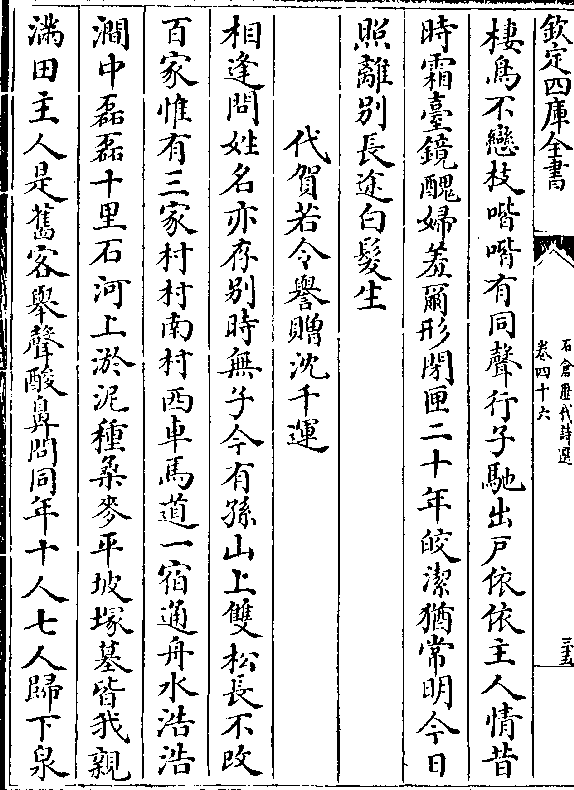 欽定四庫全書
石倉歷代詩選
卷四十六
三五
棲鳥不戀枝喈喈有同聲行子馳出戸依依主人情昔
時霜臺鏡醜婦羞爾形閉匣二十年皎潔猶常明今日
照離別長途白髮生
代賀若令譽贈沈千運
相逢問姓名亦存别時無子今有孫山上雙松長不改
百家惟有三家村村南村西車馬道一宿通舟水浩浩
澗中磊磊十里石河上淤泥種桑麥平坡塚墓皆我親
滿田主人是舊客舉聲酸鼻問同年十人七人歸下泉